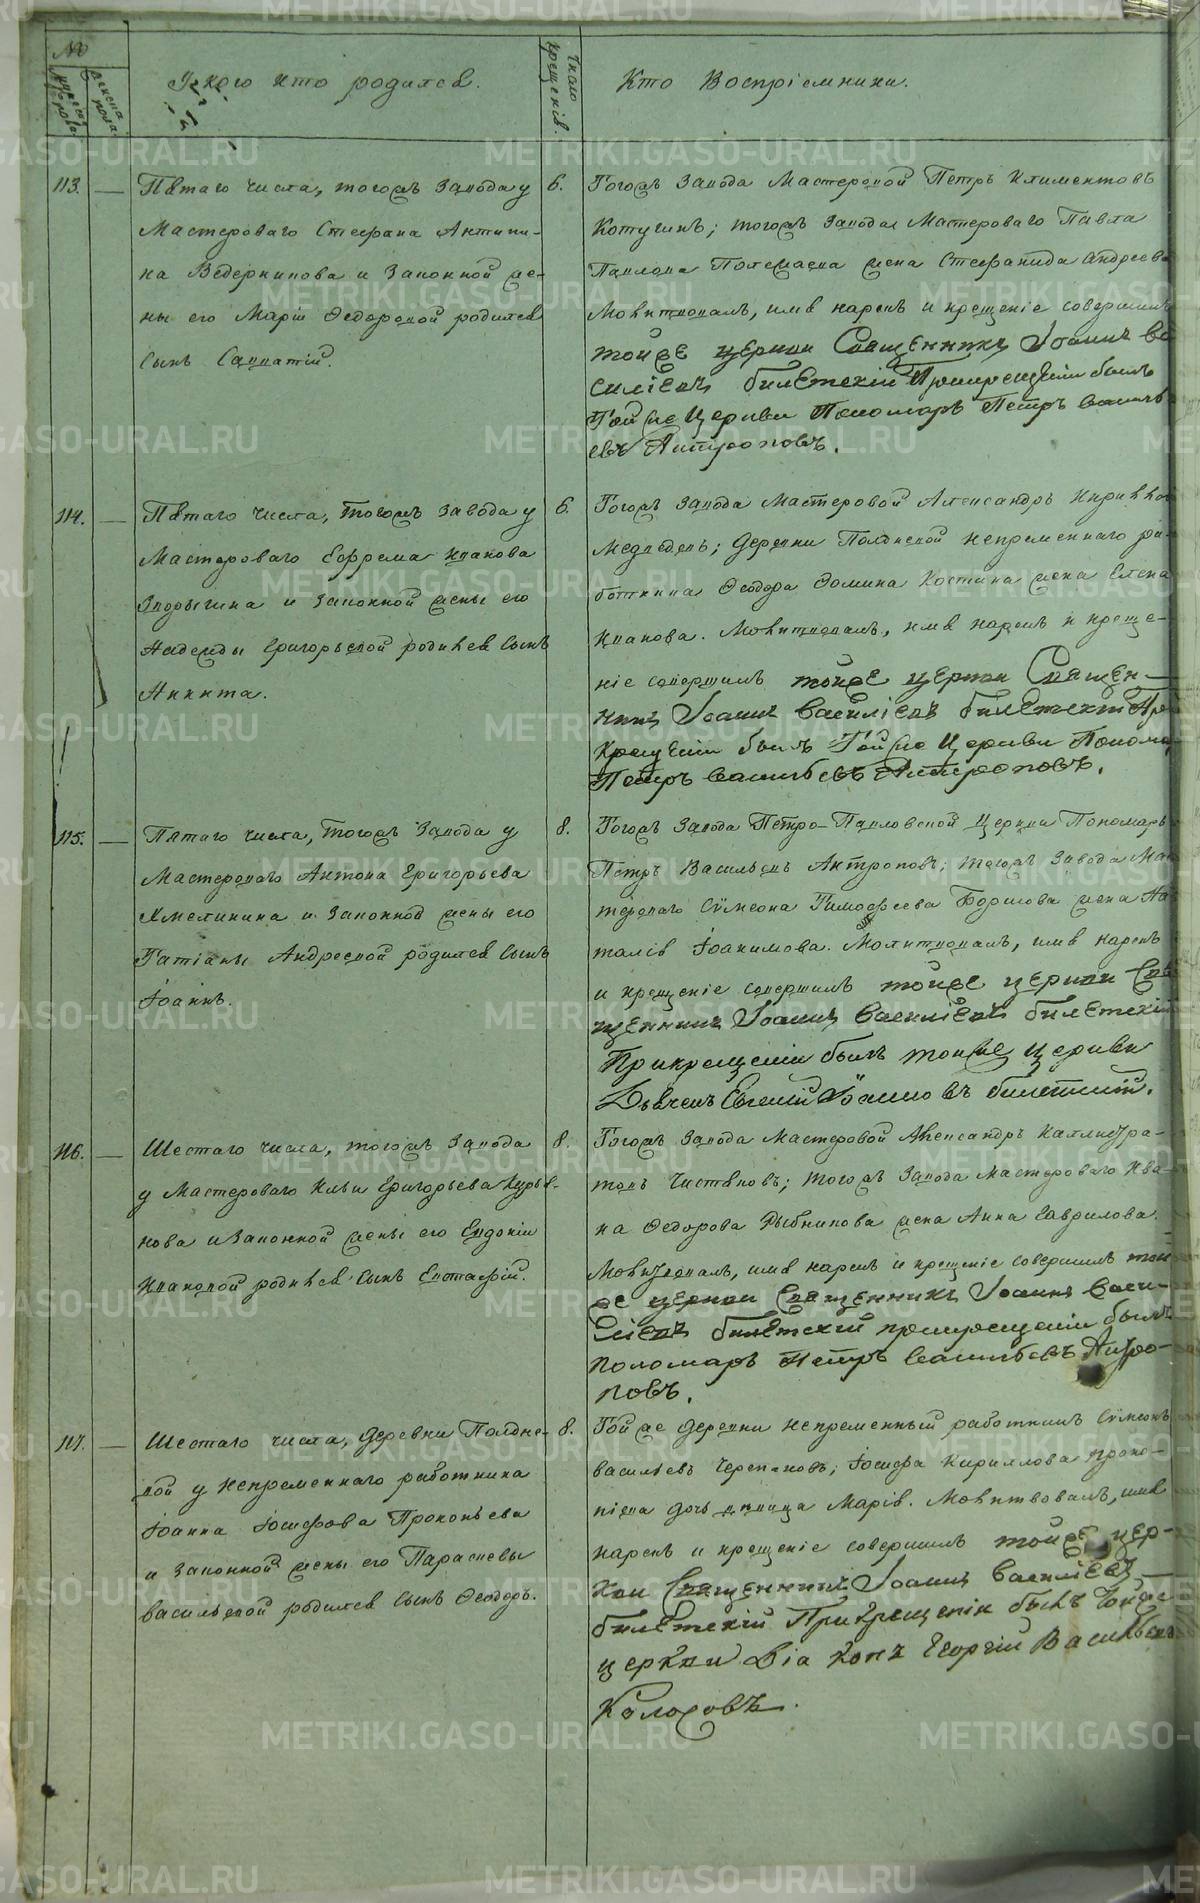 №
мужеска пола.
женска пола.
У кого кто родился.
Число крещенія.
Кто Воспріемники.
113. — Пятаго числа, тогожъ Завода у
Мастероваго Стефана Антипи-
на Ведерникова и Законной же-
ны его Маріи Федоровой родился
сынъ Савватій.
6.
Тогожъ Завода Мастеровой Петръ Климентовъ
Котугинъ; тогожъ Завода Мастероваго Павла
Павлова жена Стефанида Андреева
Молитвовалъ, имя нарекъ и крещеніе совершилъ
тойже церкви Священникъ Іоаннъ Ва
силіевъ билетскій Прикрещеніи былъ
Тойже Церкви Пономарь Петръ Василь
евъ Антроповъ.
114. — Пятаго числа, тогожъ завода у
Мастероваго Ефрема Иванова
Задорыгина и Законной жены его
Надежды Григорьевой родился сынъ
Никита.
6.
Тогожъ Завода Мастеровой Александръ
Медведевъ; деревни Полдневой непременнаго ра-
ботника Феодора Фомина Костина жена Елена
Иванова. Молитвовалъ, имя нарекъ и креще-
ніе совершилъ тойже церкви Священ-
никъ Іоаннъ Василіевъ билетскій При
крещеніи былъ Тойже Церкви Понома
Петръ Васильевъ Антроповъ.
115. — Пятаго числа, тогожъ Завода у
Мастероваго Антона Григорьева
Хмелинина и Законной жены его
Татіаны Андреевой родился сынъ
Іоаннъ.
8.
Тогожъ Завода Петро-Павловской Церкви Пономарь
Петръ Васильевъ Антроповъ; тогожъ Завода Ма
тероваго Сѵмеона Тимофеева Боршова жена На
талія Іоакимова. Молитвовалъ, имя нарекъ
и крещеніе совершилъ тойже церкви Свя
щенникъ Іоаннъ Василіевъ билетскій
Прикрещеніи былъ тойже церкви
Дьячекъ Евгеній билетскій.
116. — Шестаго числа, тогожъ Завода
у Мастероваго Ильи Григорьева
нова и Законной жены его Евдокіи
Ивановой родился сынъ Евстафій.
8.
Тогожъ Завода Мастеровой Александръ Каллистра-
товъ Чистяковъ; тогожъ Завода Мастероваго Ива-
на Федорова Рыбникова жена Анна Гаврилова.
Молитвовалъ, имя нарекъ и крещеніе совершилъ той
же церкви Священникъ Іоаннъ Васи-
ліевъ билетскій прикрещеніи былъ
пономарь Петръ Васильевъ Антро-
повъ.
117. — Шестаго числа, деревни Полдне-
вой у непременнаго работника
Іоанна Іосифова Прокопьева
и Законной жены его Парасковы
Васильевой родился сынъ Феодоръ.
8.
Тойже деревни непременный работникъ Сѵмеонъ
Васильевъ Черепановъ; Іосифа Кириллова Проко-
піева дочь девица Марія. Молитвовалъ, имя
нарекъ и крещеніе совершилъ тойже цер-
кви Священникъ Іоаннъ Василіевъ
билетскій Прикрещеніи былъ тойже
церкви Діаконъ Георгій Васильевъ
Колосовъ.
METRIKI.GASO-URAL.RU